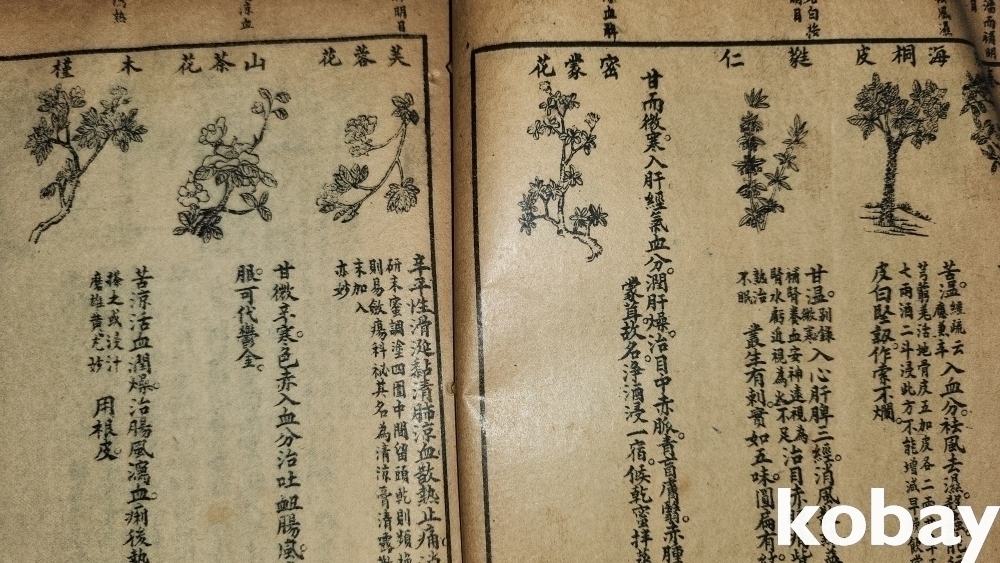 海桐皮
苦溫
經疏云
入血分祛風去濕殺
皮白堅韌作索不爛
蕤仁
甘溫
別錄
微寒
入心肝脾三經消風
補腎養血安神遠視為
腎水虧近視為火不足
治目赤
熟治
不眠
叢生有刺實如五味圓扁有
密蒙花
甘而微寒入肝經氣血分潤肝燥治目中赤脈青盲膚翳赤腫
蒙茸故名淨酒浸一宿候乾蜜拌蒸
芙蓉花
辛平性滑涎黏清肺涼血散熱止痛消
研末蜜調塗四圍中間留頭乾則頻換
則易斂瘍科祕其名為清涼膏清露散
末加入
亦妙
山茶花
甘微辛寒色赤入血分治吐衄腸風
服可代鬱金
木槿
苦涼活血潤燥治腸風瀉血痢後熱
搽之或浸汁
磨雄黃尤妙
用根皮
kobay